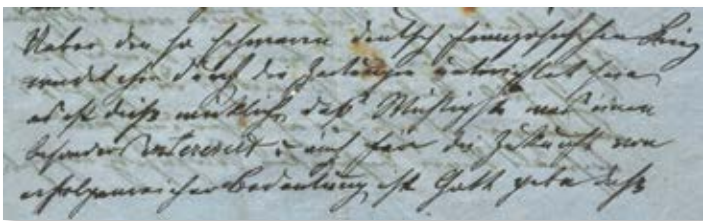 Ueber den so schweren deutsch französischen Krieg
werdet ihr durch die Zeitungen unterrichtet sein
es ist dieß wirklich das Wichtigste was einen
besonders interessirt u auch für die Zukunft von
erfolgreicher Bedeutung ist Gott gebe daß